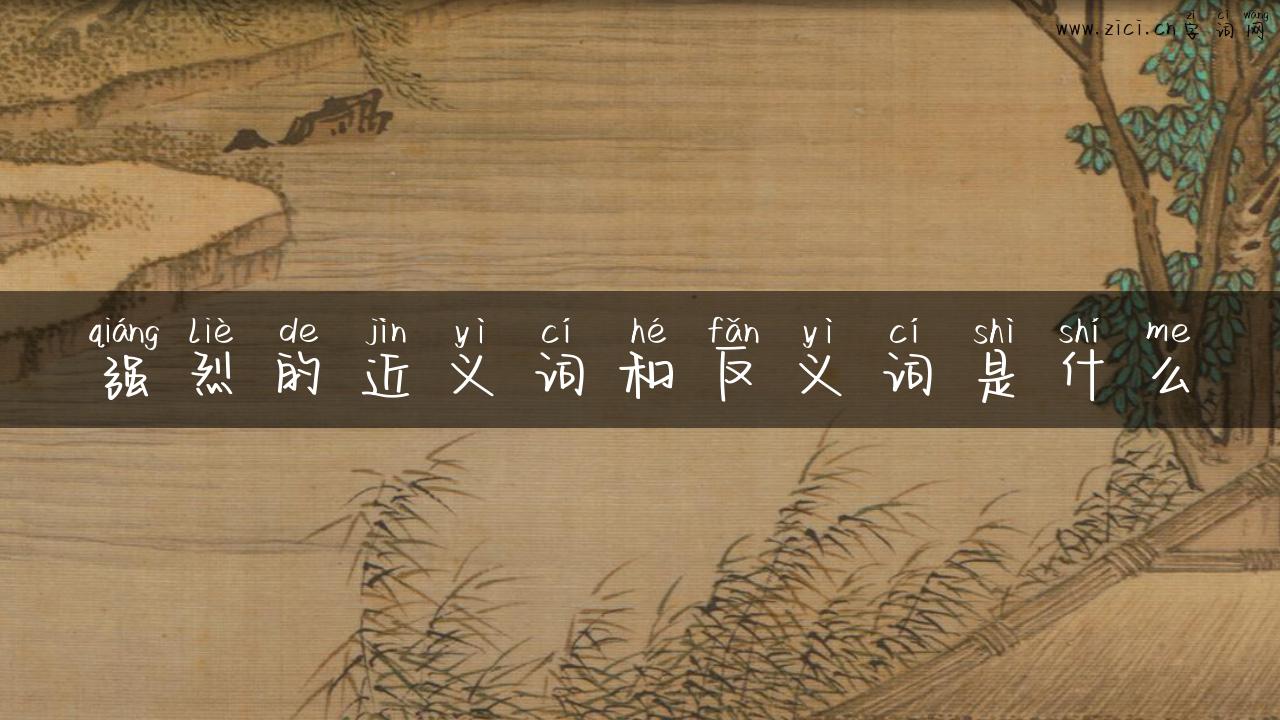 zì cí wǎng
www.zici.cn 字词网
qiáng liè de jìn yì cí hé fǎn yì cí shì shí me
强烈的近义词和反义词是什么